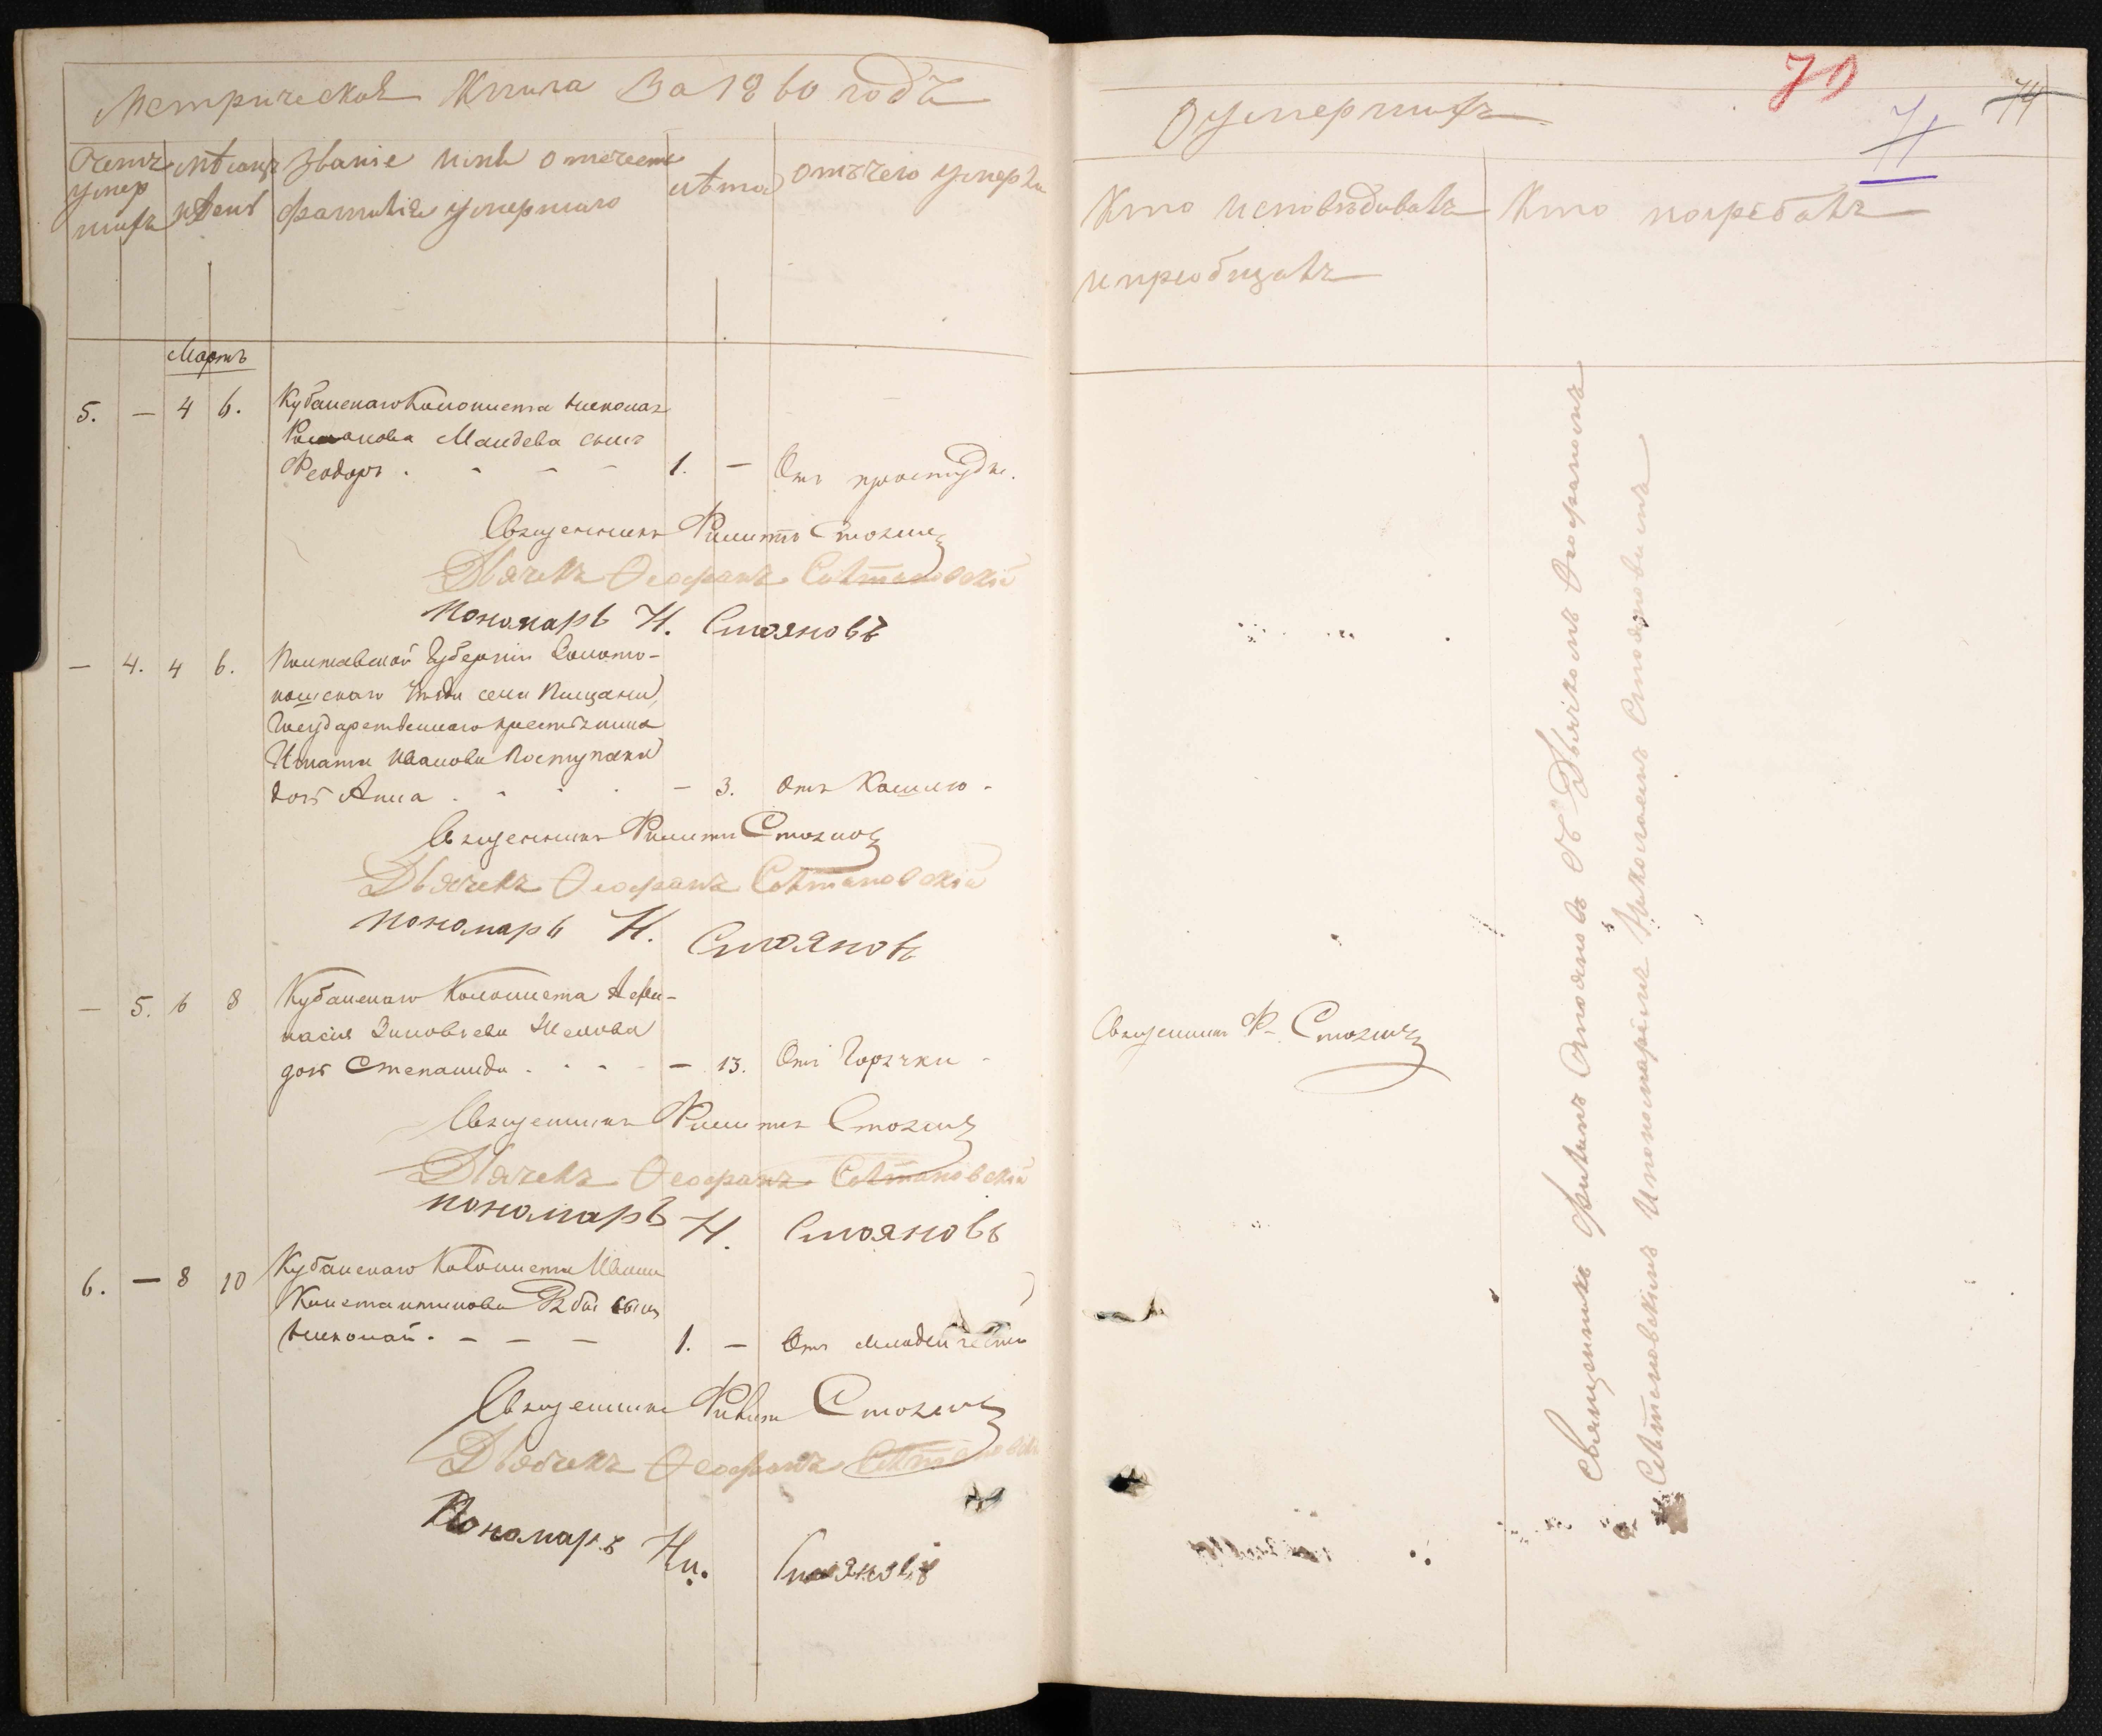 Метрическая Книга За 1860 годъ
Счетъ умершихъ
мѣсяцъ и день
Званіе имя отечество фамилія умершаго
лѣта
отъ чего умеръ
О умершихъ
70
71
74
Кто исповѣдывалъ и пріобщалъ
Кто погребалъ
Мартъ
5. — 4 6. Кубанскаго Колониста Николая
Романова Мандева сынъ
Феодоръ . - - - 1. — Отъ простуды.
Священникъ Филиппъ Стояновъ
Дьячекъ Ѳеофанъ
Пономарь Н. Стояновъ
— 4. 4 6. Полтавской Губерніи Золото-
ношскаго уѣзда села Пищани,
Государственнаго крестьянина
Игната Иванова Поступаки
дочь Анна . - . . — 3. Отъ Кашлю -
Священникъ Филиппъ Стояновъ
Дьячекъ Ѳеофанъ
Пономарь Н. Стояновъ
— 5. 6 8 Кубанскаго Колониста Афа-
насія Зиновьева Желова
дочь Степанида . . - - — 13. Отъ Горячки -
Священникъ Ф. Стояновъ
Священникъ Филиппъ Стояновъ
Дьячекъ Ѳеофанъ
Пономарь Н. Стояновъ
6. — 8 10 Кубанскаго Колониста Ивана
Константинова сынъ
Николай. - — — 1. — Отъ младенческой
Священникъ Филиппъ Стояновъ
Дьячекъ Ѳеофанъ
Пономарь Ни. Стояновъ
Священникъ Филипъ Стояновъ съ Дьячкомъ Ѳеофаномъ
и пономаремъ Николаемъ Стояновимъ